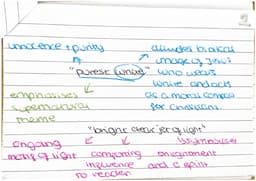 innocence + purity
alludes biblical
image of Jesus
"purest white"
who wears
white and acts
emphasises
as a moral compass
supernatural
for christians.
theme
"bright clear jet of light"
ongoing
symbolises
motif of light
comforting
enlightenment
influence
and
spirit
to reader